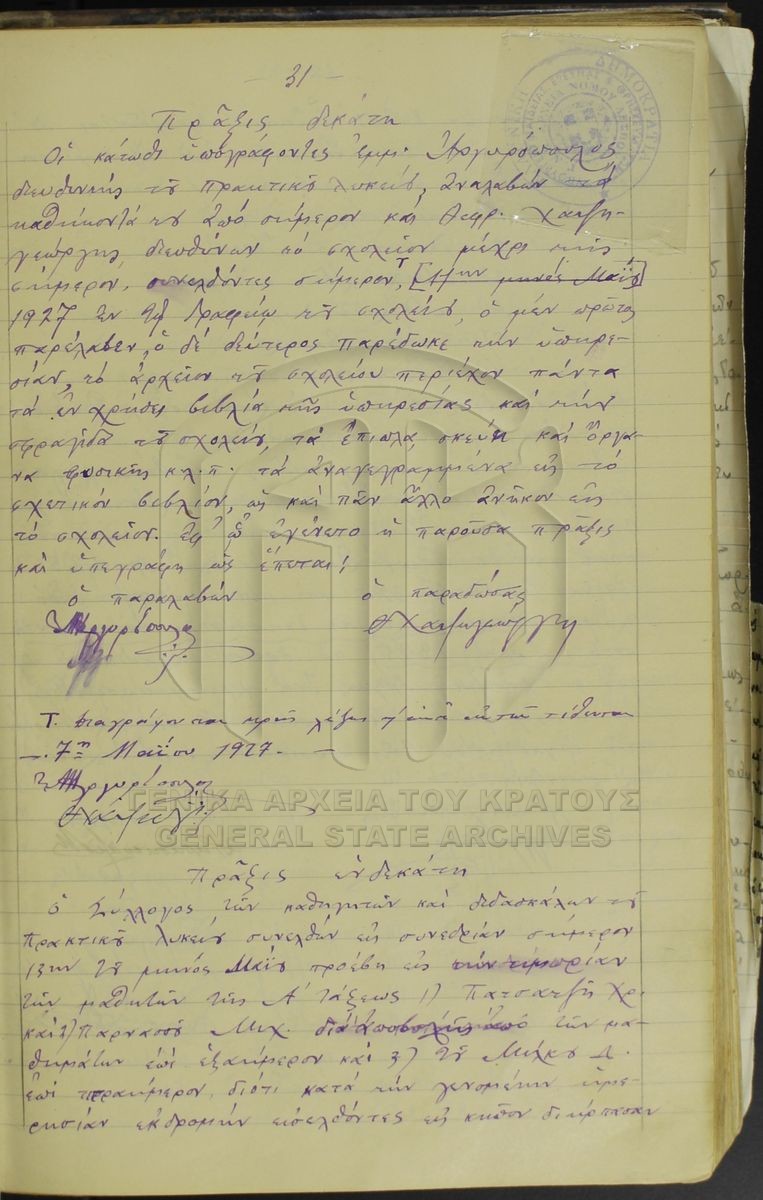 - 31 -
Πρᾶξις δεκάτη
Οἱ κάτωθι ὑπογράφοντες Ἐμμ. Ἀργυρόπουλος
διευθυντής τοῦ πρακτικοῦ λυκείου, ἀναλαβών τά
καθήκοντά του ἀπό σήμερον καί Θεφρ. Χατζη-
γεώργης, διευθύνων τό σχολεῖον μέχρι τῆς
σήμερον, συνελθόντες σήμερον, Τ [την μηνός Μαΐου]
1927 ἐν τῷ γραφείῳ τοῦ σχολείου, ὁ μέν πρῶτος
παρέλαβεν, ὁ δέ δεύτερος παρέδωκε τήν ὑπηρε-
σίαν, τό ἀρχεῖον τοῦ σχολείου περιέχον πάντα
τά ἐν χρήσει βιβλία τῆς ὑπηρεσίας καί τήν
σφραγῖδα τοῦ σχολείου, τά ἔπιπλα, σκεύη καί ὄργα-
να φυσικῆς κ.λ.π. τά ἀναγεγραμμένα εἰς τό
σχετικόν βιβλίον, ὡς καί πᾶν ἄλλο ἀνῆκον εἰς
τό σχολεῖον. Ἐφ' ᾧ ἐγένετο ἡ παροῦσα πρᾶξις
καί ὑπεγράφη ὡς ἕπεται:
ὁ παραλαβών ὁ παραδώσας
Ἀργυρόπουλος Θ Χατζηγεώργης
Τ. Διαγράφονται τρεῖς λέξεις τίθενται
-. 7η Μαΐου 1927. -
Ἀργυρόπουλος
ΓΕΝΙΚΑ ΑΡΧΕΙΑ ΤΟΥ ΚΡΑΤΟΥΣ
GENERAL STATE ARCHIVES
Πρᾶξις ἑνδεκάτη
Ὁ Σύλλογος τῶν καθηγητῶν καί διδασκάλων τοῦ
Πρακτικοῦ λυκείου συνελθών εἰς συνεδρίαν σήμερον
13ην τοῦ μηνός Μαΐου προέβη εἰς τήν τιμωρίαν
τῶν μαθητῶν τῆς Α΄ τάξεως 1) Πατσατζῆ Χρ.
καί 2) Παρνασσοῦ Μιχ. διά ἀποβολῆς ἀπό τῶν μα-
θημάτων ἐπί ἑξαήμερον καί 3) τοῦ Μίλκου Δ.
ἐπί τετραήμερον, διότι κατά τήν γενομένην ἡμε-
ρησίαν ἐκδρομήν εἰσελθόντες εἰς κῆπον διήρπασαν